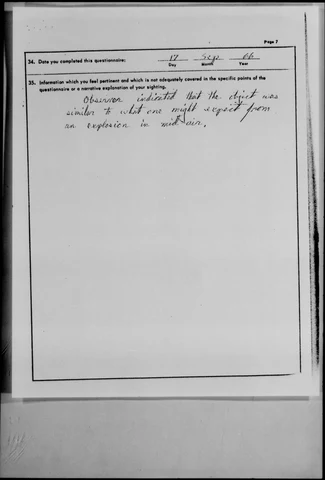 Page 7
34. Date you completed this questionnaire: 17 Sep 66
Day Month Year
35. Information which you feel pertinent and which is not adequately covered in the specific points of the
questionnaire or a narrative explanation of your sighting.
Observer indicated that the object was
similar to what one might expect from
an explosion in mid-air.